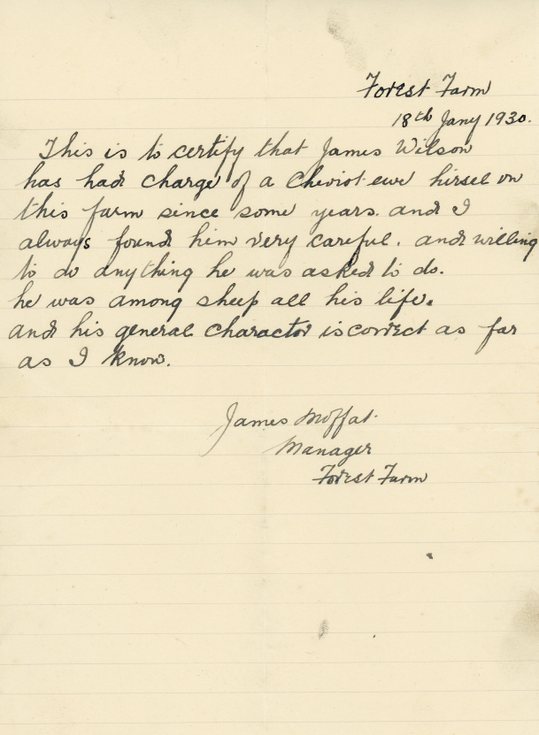 Forest Farm
18th Jany 1930.
This is to certify that James Wilson
has had charge of a Cheviot ewe hirsel on
this farm since some years. and I
always found him very careful. and willing
to do anything he was asked to do.
he was among sheep all his life.
and his general charactor is correct as far
as I know.
James Moffat.
Manager
Forest Farm